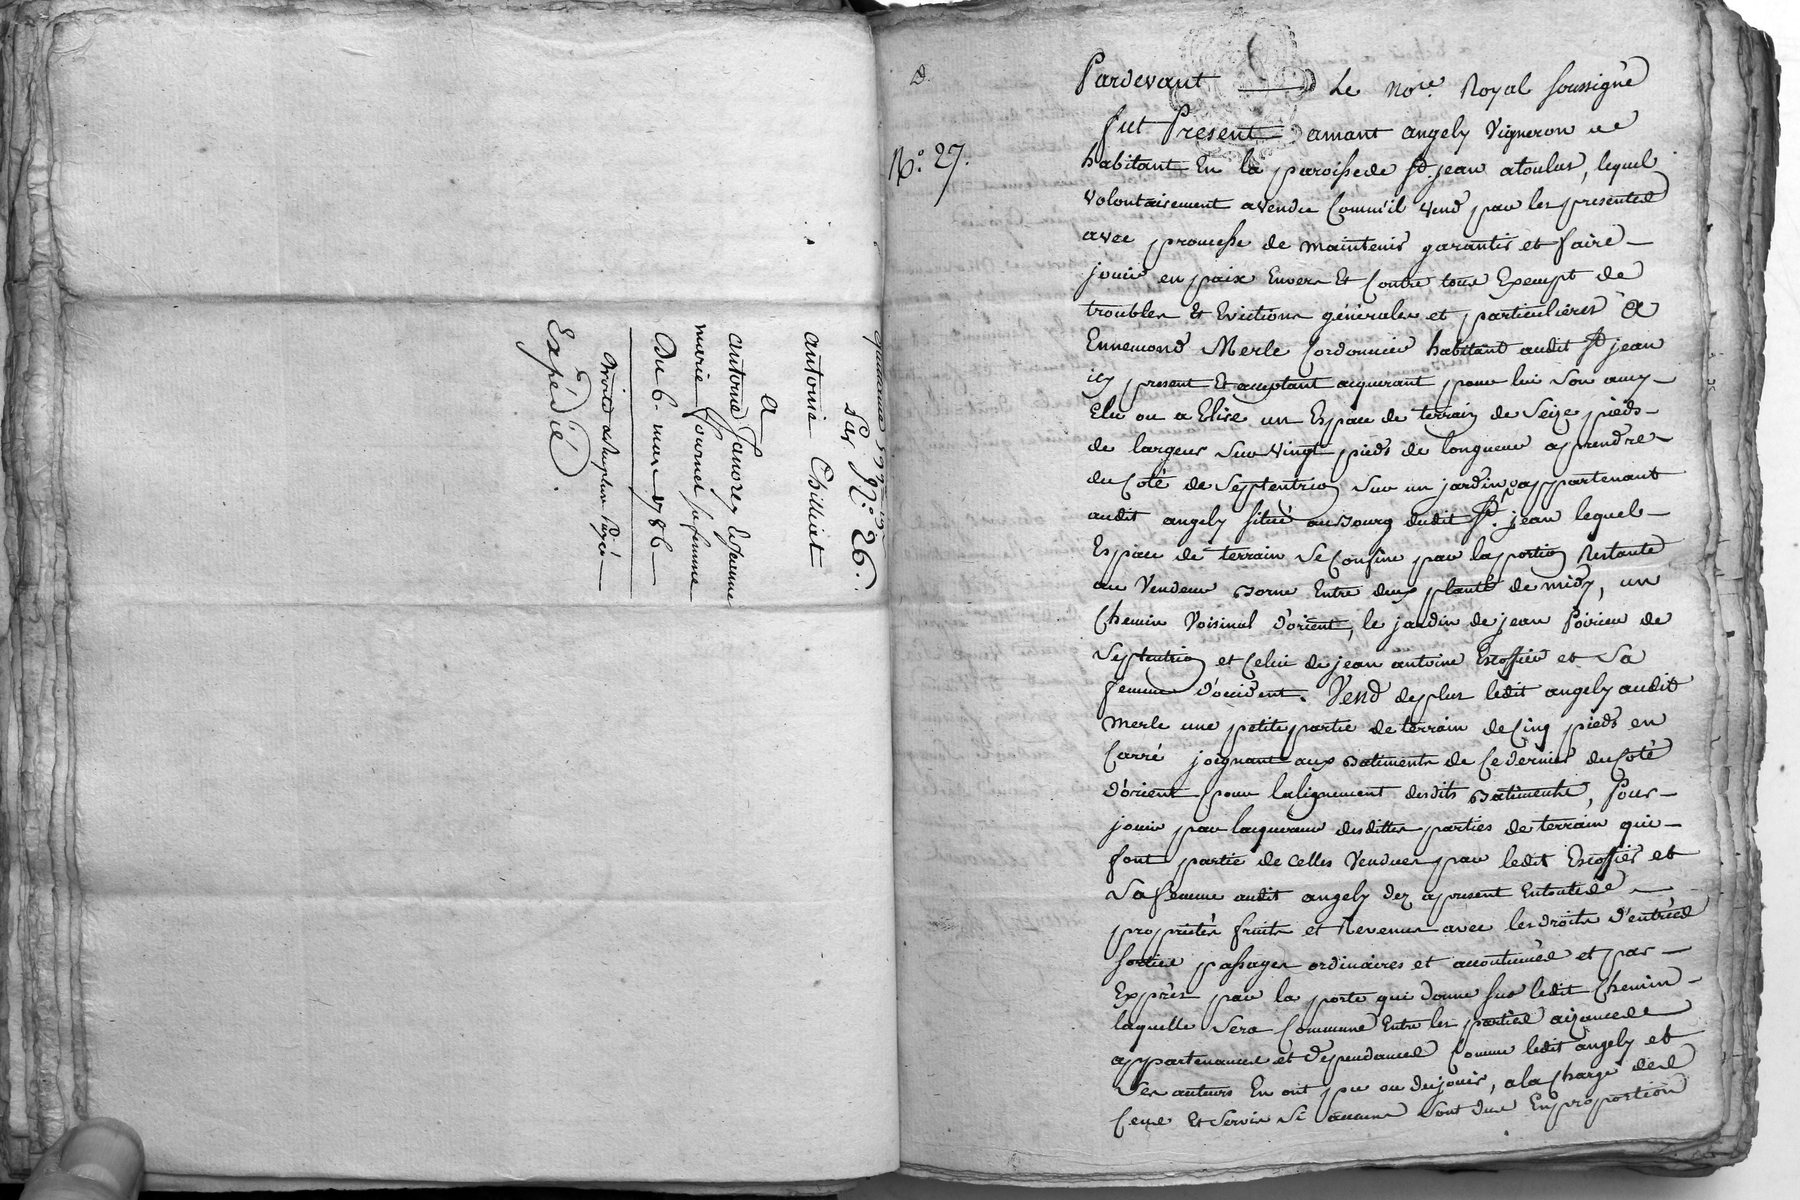 quittance
par N.° 26.
antoinie Chilliet
a
antoine Favorey
marie Fournel sa femme
Du 6. mars 1786
Droits
Expédié.
N.° 27.
Pardevant Le No.re Royal soussigné
fut Present amant angely Vigneron
habitant En la paroisse de St. jean atoulas, lequel
volontairement a vendu Comm'il vend par les presentes
avec promesse de maintenir garantir et faire
jouir en paix Envers Et Contre tous Exempt de
troubles Et Evictions générales et particulières A
Ennemond Merle Cordonnier habitant audit St jean
icy present Et acceptant acquerant pour lui Son amy
Elu ou a Elire un Espace de terrain de Seize pieds
de largeur Sur Vingt pieds de longueur a prendre
du Coté de Septentrion Sur un jardin appartenant
audit angely situé au Bourg dudit St. jean lequel
Espace de terrain Se Confine par la portion Restante
au Vendeur Borne Entre deux plantée de midy, un
Chemin Voisinal d'orient, le jardin de jean Poirieu de
Septentrion et Celui de jean antoine Escoffier et Sa
femme d'occident. Vend de plus ledit angely audit
Merle une petite partie de terrain de Cinq pieds en
Carré joignant aux Batiments de Ce dernier du Coté
d'orient pour lalignement desdits Batiments, Pour
jouir par lacquereur desdittes parties de terrain qui
font partie de celles Vendues par ledit Escoffier et
Sa femme audit angely dez apresent En toute
propriétés fruits et Revenus avec les droits d'entrées
sorties passages ordinaires et accoutumés et par
Exprès par la porte qui donne sur ledit Chemin
laquelle Sera Commune Entre les parties aizances
appartenances et dependances Comme ledit angely et
Ses auteurs En ont pu ou du jouir, a la Charge des
Cens Et Servis Si aucuns Sont dus En proportion